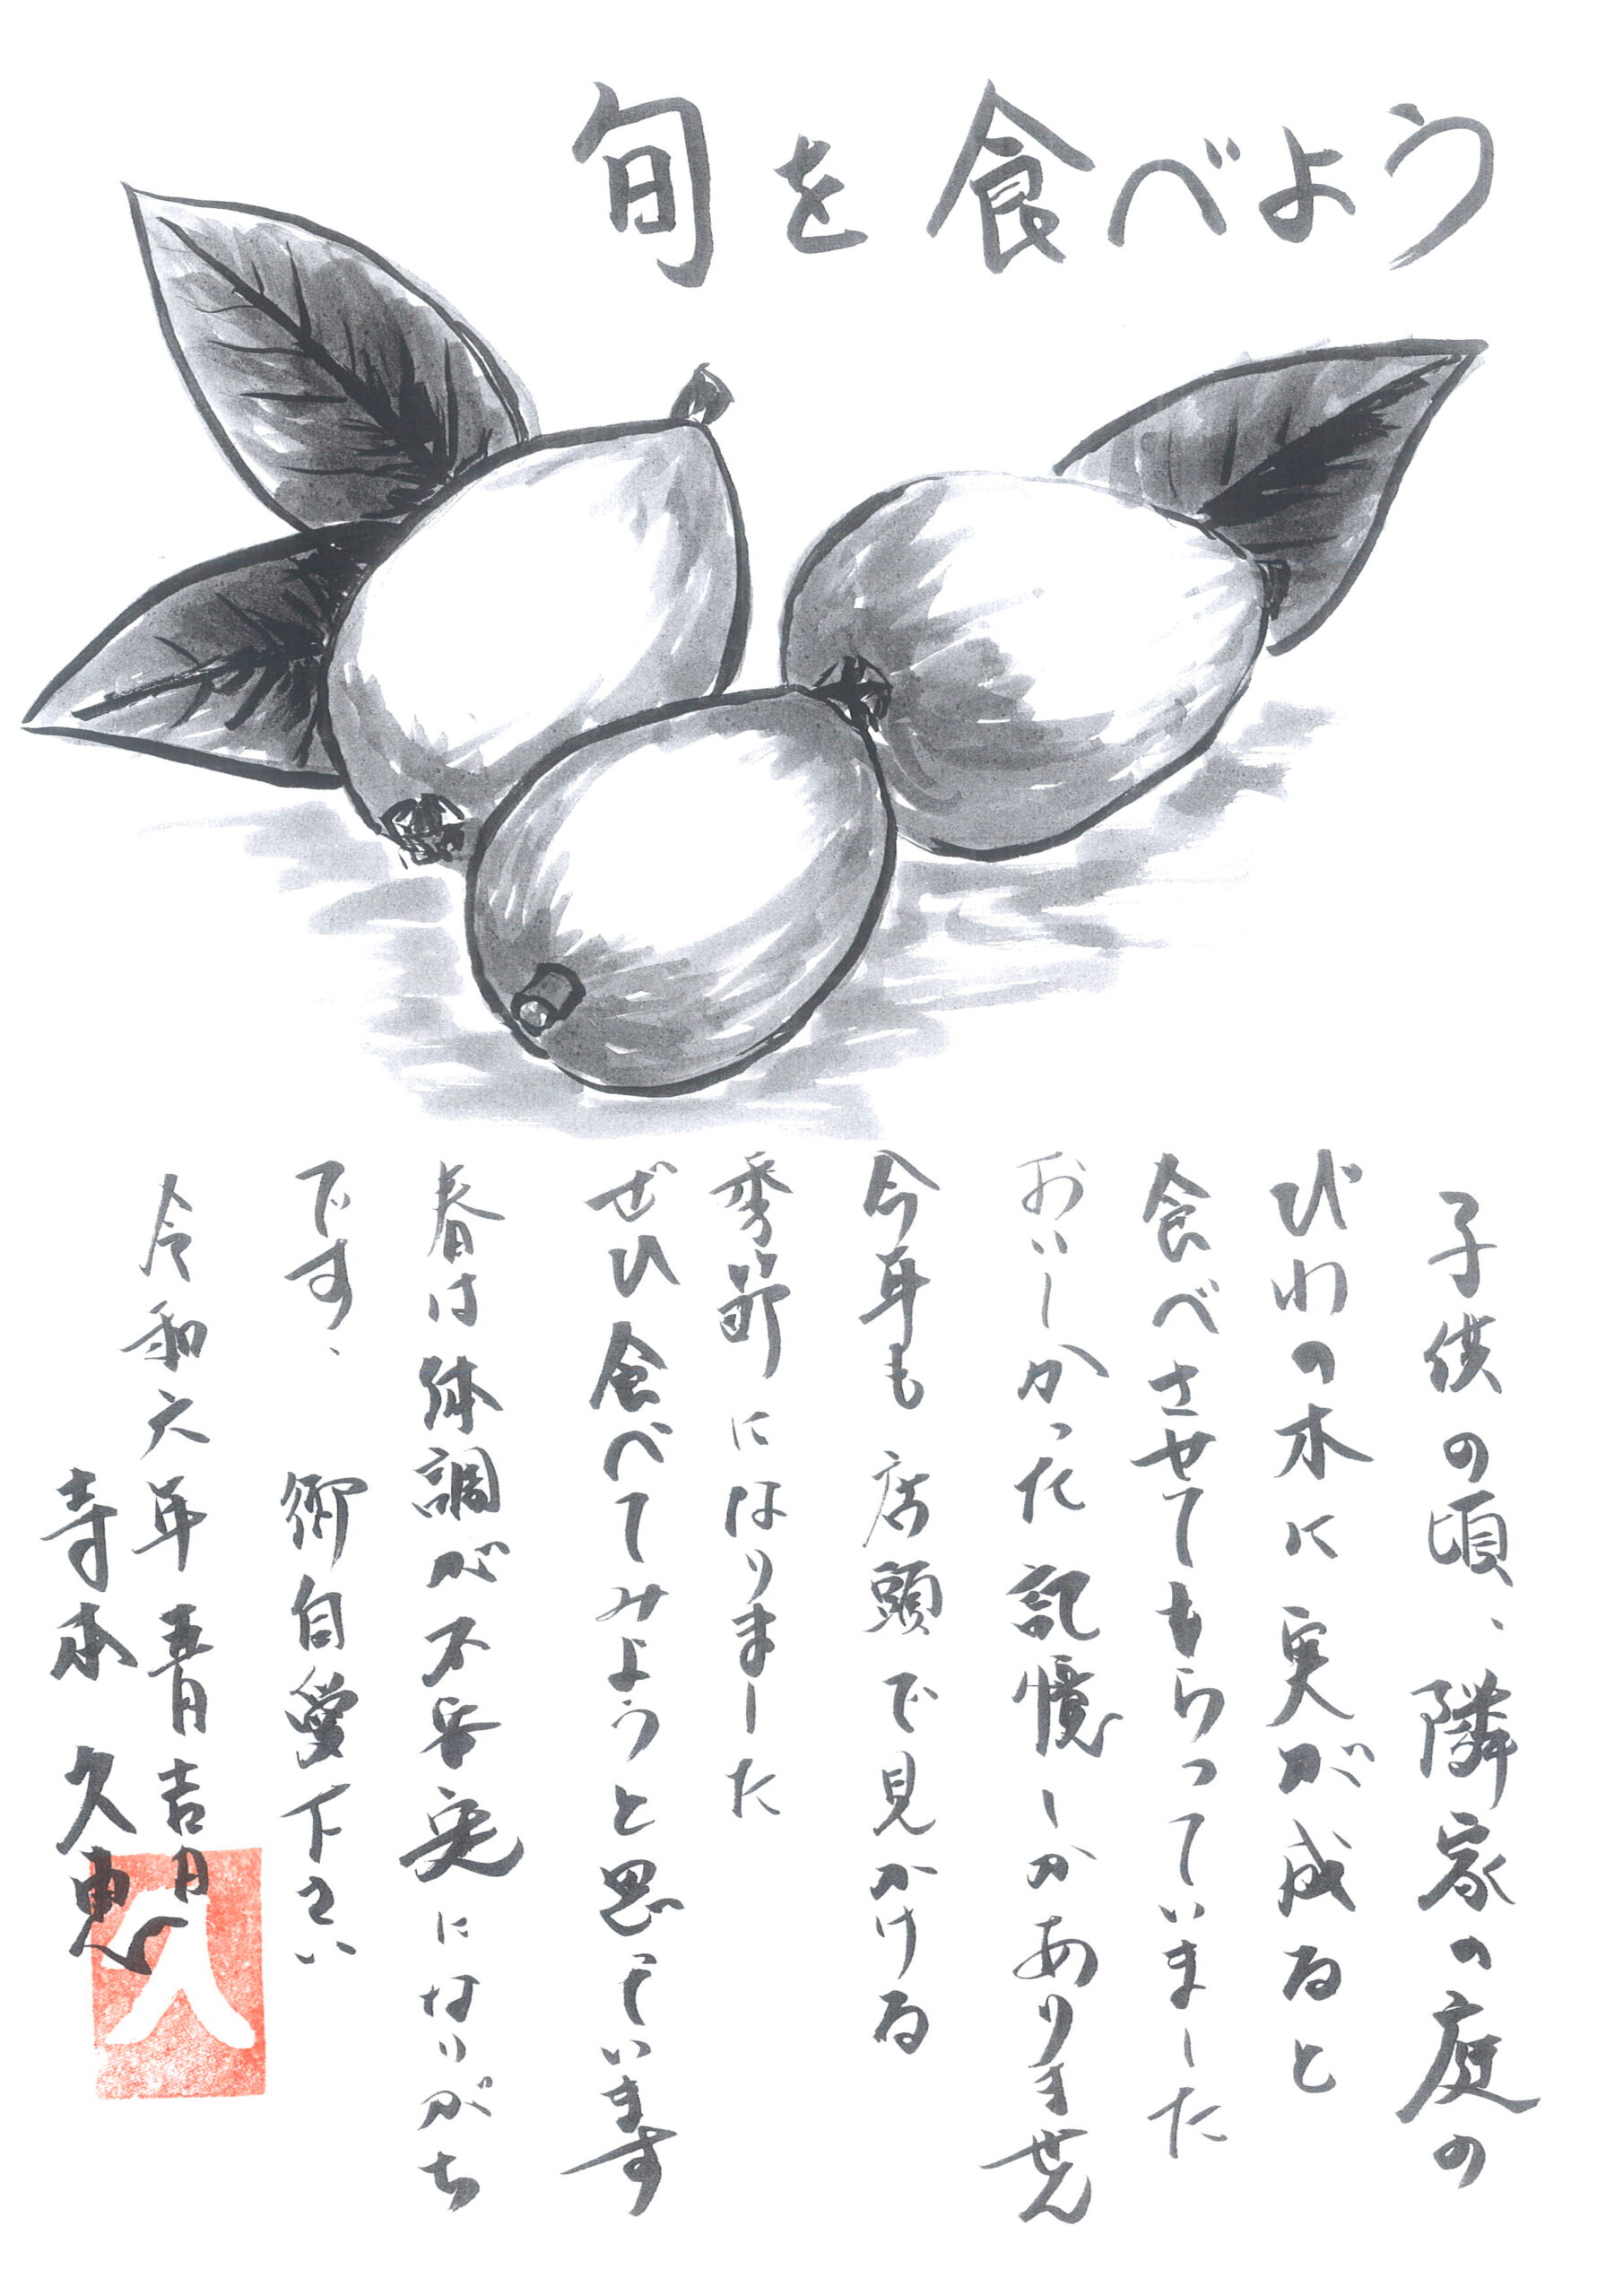 旬を食べよう
子供の頃、隣家の庭の
びわの木に実が成ると
食べさせてもらっていました
おいしかった記憶しかありません
今年も店頭で見かける
季節になりました
ぜひ食べてみようと思っています
春は体調が不安定になりがち
です、御自愛下さい
令和六年五月吉日
寺本久恵
久